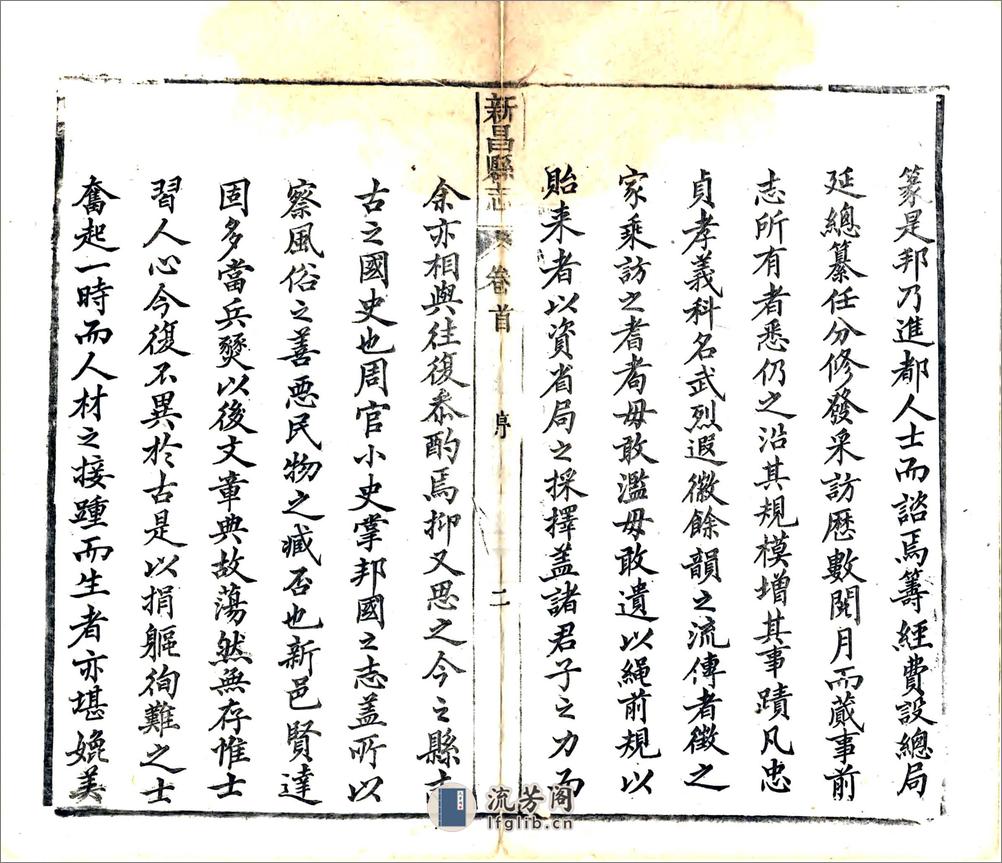 篆是邦乃進都人士而諮焉籌經費設總局
延總纂任分修發采訪歷數閱月而蕆事前
志所有者悉仍之沿其規模增其事蹟凡忠
貞孝義科名武烈遐徽餘韻之流傳者徵之
家乘訪之耆耈毋敢濫毋敢遺以繩前規以
貽来者以資省局之採擇盖諸君子之力而
新昌縣志
卷首
序
二
余亦相與往復叅酌焉抑又思之今之縣志
古之國史也周官小史掌邦國之志盖所以
察風俗之善惡民物之臧否也新邑賢達
固多當兵燹以後文章典故蕩然無存惟士
習人心今復不異於古是以捐軀徇難之士
奮起一時而人材之接踵而生者亦堪媲美
流芳阁
lfglib.cn